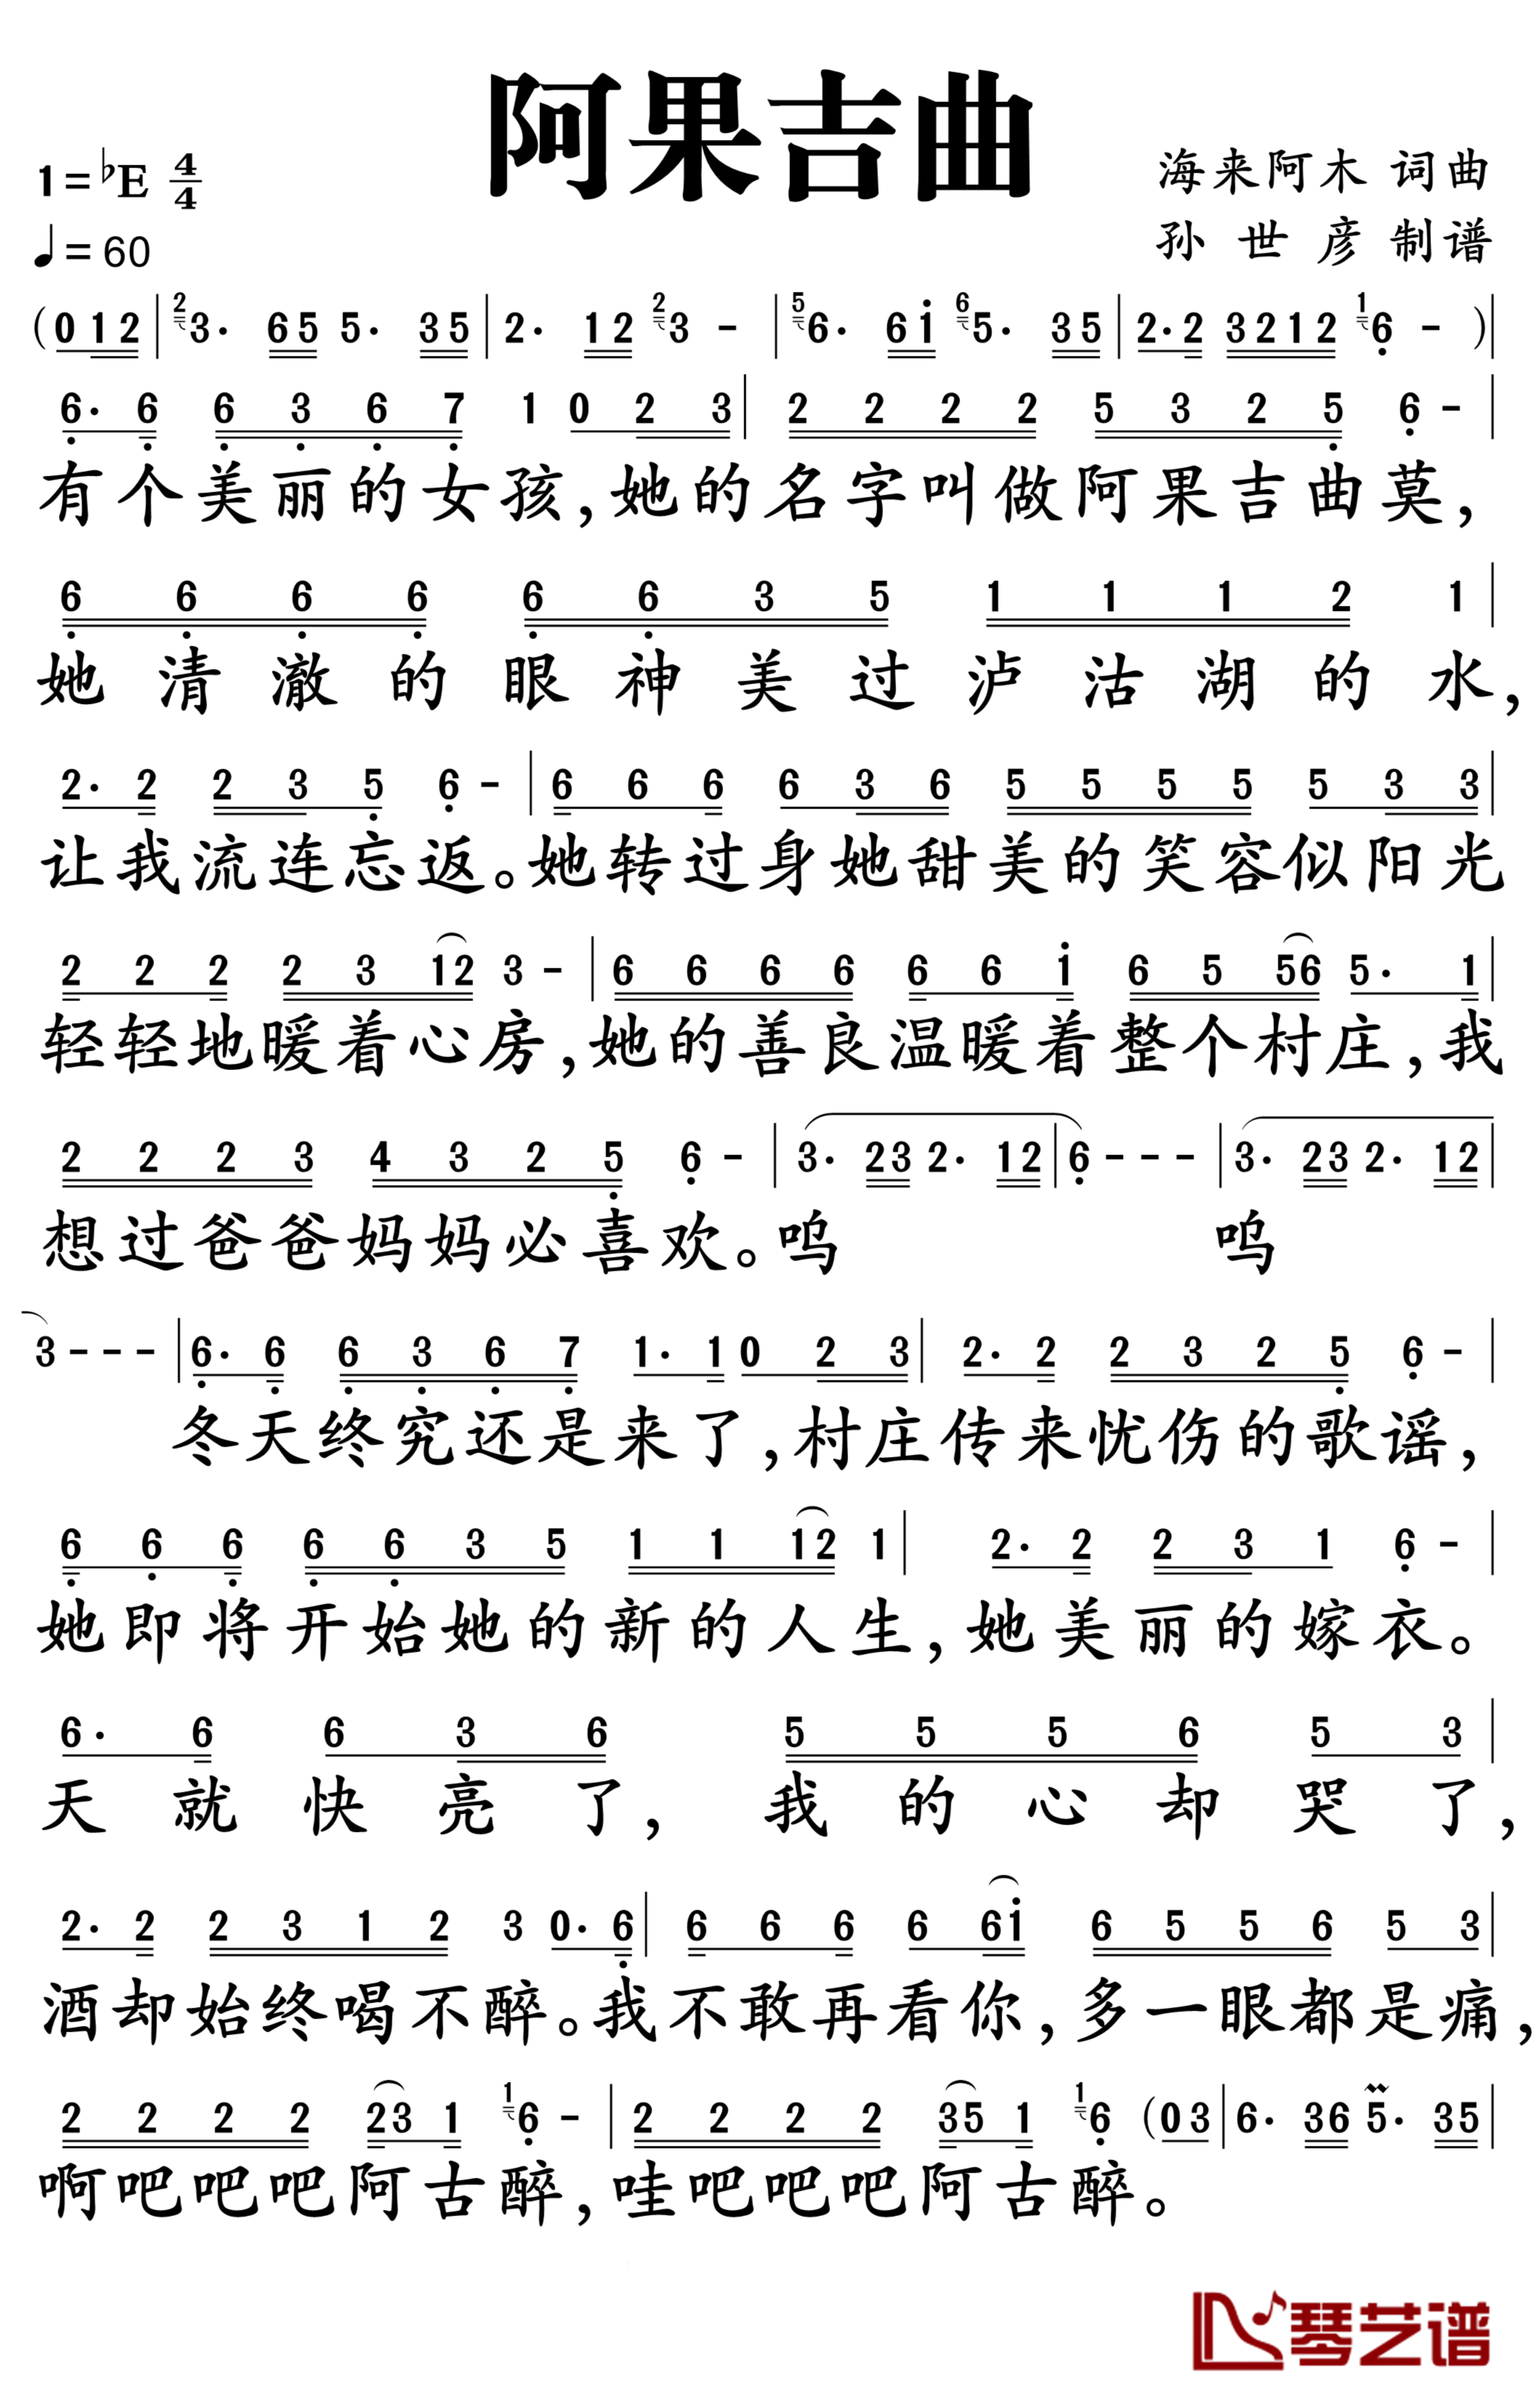 阿果吉曲
1=♭E 4/4
海来阿木 词曲
♩=60
孙世彦 制谱
(0 1 2 | 2 3· 6 5 5· 3 5 | 2· 1 2 2 3 - | 5 6· 6 1 6 5· 3 5 | 2· 2 3 2 1 2 1 6 - ) |
6· 6 6 3 6 7 1 0 2 3 | 2 2 2 2 5 3 2 5 6 - |
有个美丽的女孩,她的名字叫做阿果吉曲莫,
6 6 6 6 6 6 3 5 1 1 1 2 1 |
她清澈的眼神美过泸沽湖的水,
2· 2 2 3 5 6 - | 6 6 6 6 3 6 5 5 5 5 5 3 3 |
让我流连忘返。她转过身她甜美的笑容似阳光
2 2 2 2 3 1 2 3 - | 6 6 6 6 6 6 1 6 5 5 6 5· 1 |
轻轻地暖着心房,她的善良温暖着整个村庄,我
2 2 2 3 4 3 2 5 6 - | 3· 2 3 2· 1 2 | 6 - - - | 3· 2 3 2· 1 2 |
想过爸爸妈妈必喜欢。呜 呜
3 - - - | 6· 6 6 3 6 7 1· 1 0 2 3 | 2· 2 2 3 2 5 6 - |
冬天终究还是来了,村庄传来忧伤的歌谣,
6 6 6 6 6 3 5 1 1 1 2 1 | 2· 2 2 3 1 6 - |
她即将开始她的新的人生,她美丽的嫁衣。
6· 6 6 3 6 5 5 5 6 5 3 |
天就快亮了,我的心却哭了,
2· 2 2 3 1 2 3 0· 6 | 6 6 6 6 6 1 6 5 5 6 5 3 |
酒却始终喝不醉。我不敢再看你,多一眼都是痛,
2 2 2 2 2 3 1 1 6 - | 2 2 2 2 3 5 1 1 6 (0 3 | 6· 3 6 5· 3 5 |
啊吧吧吧阿古醉,哇吧吧吧阿古醉。
琴艺谱